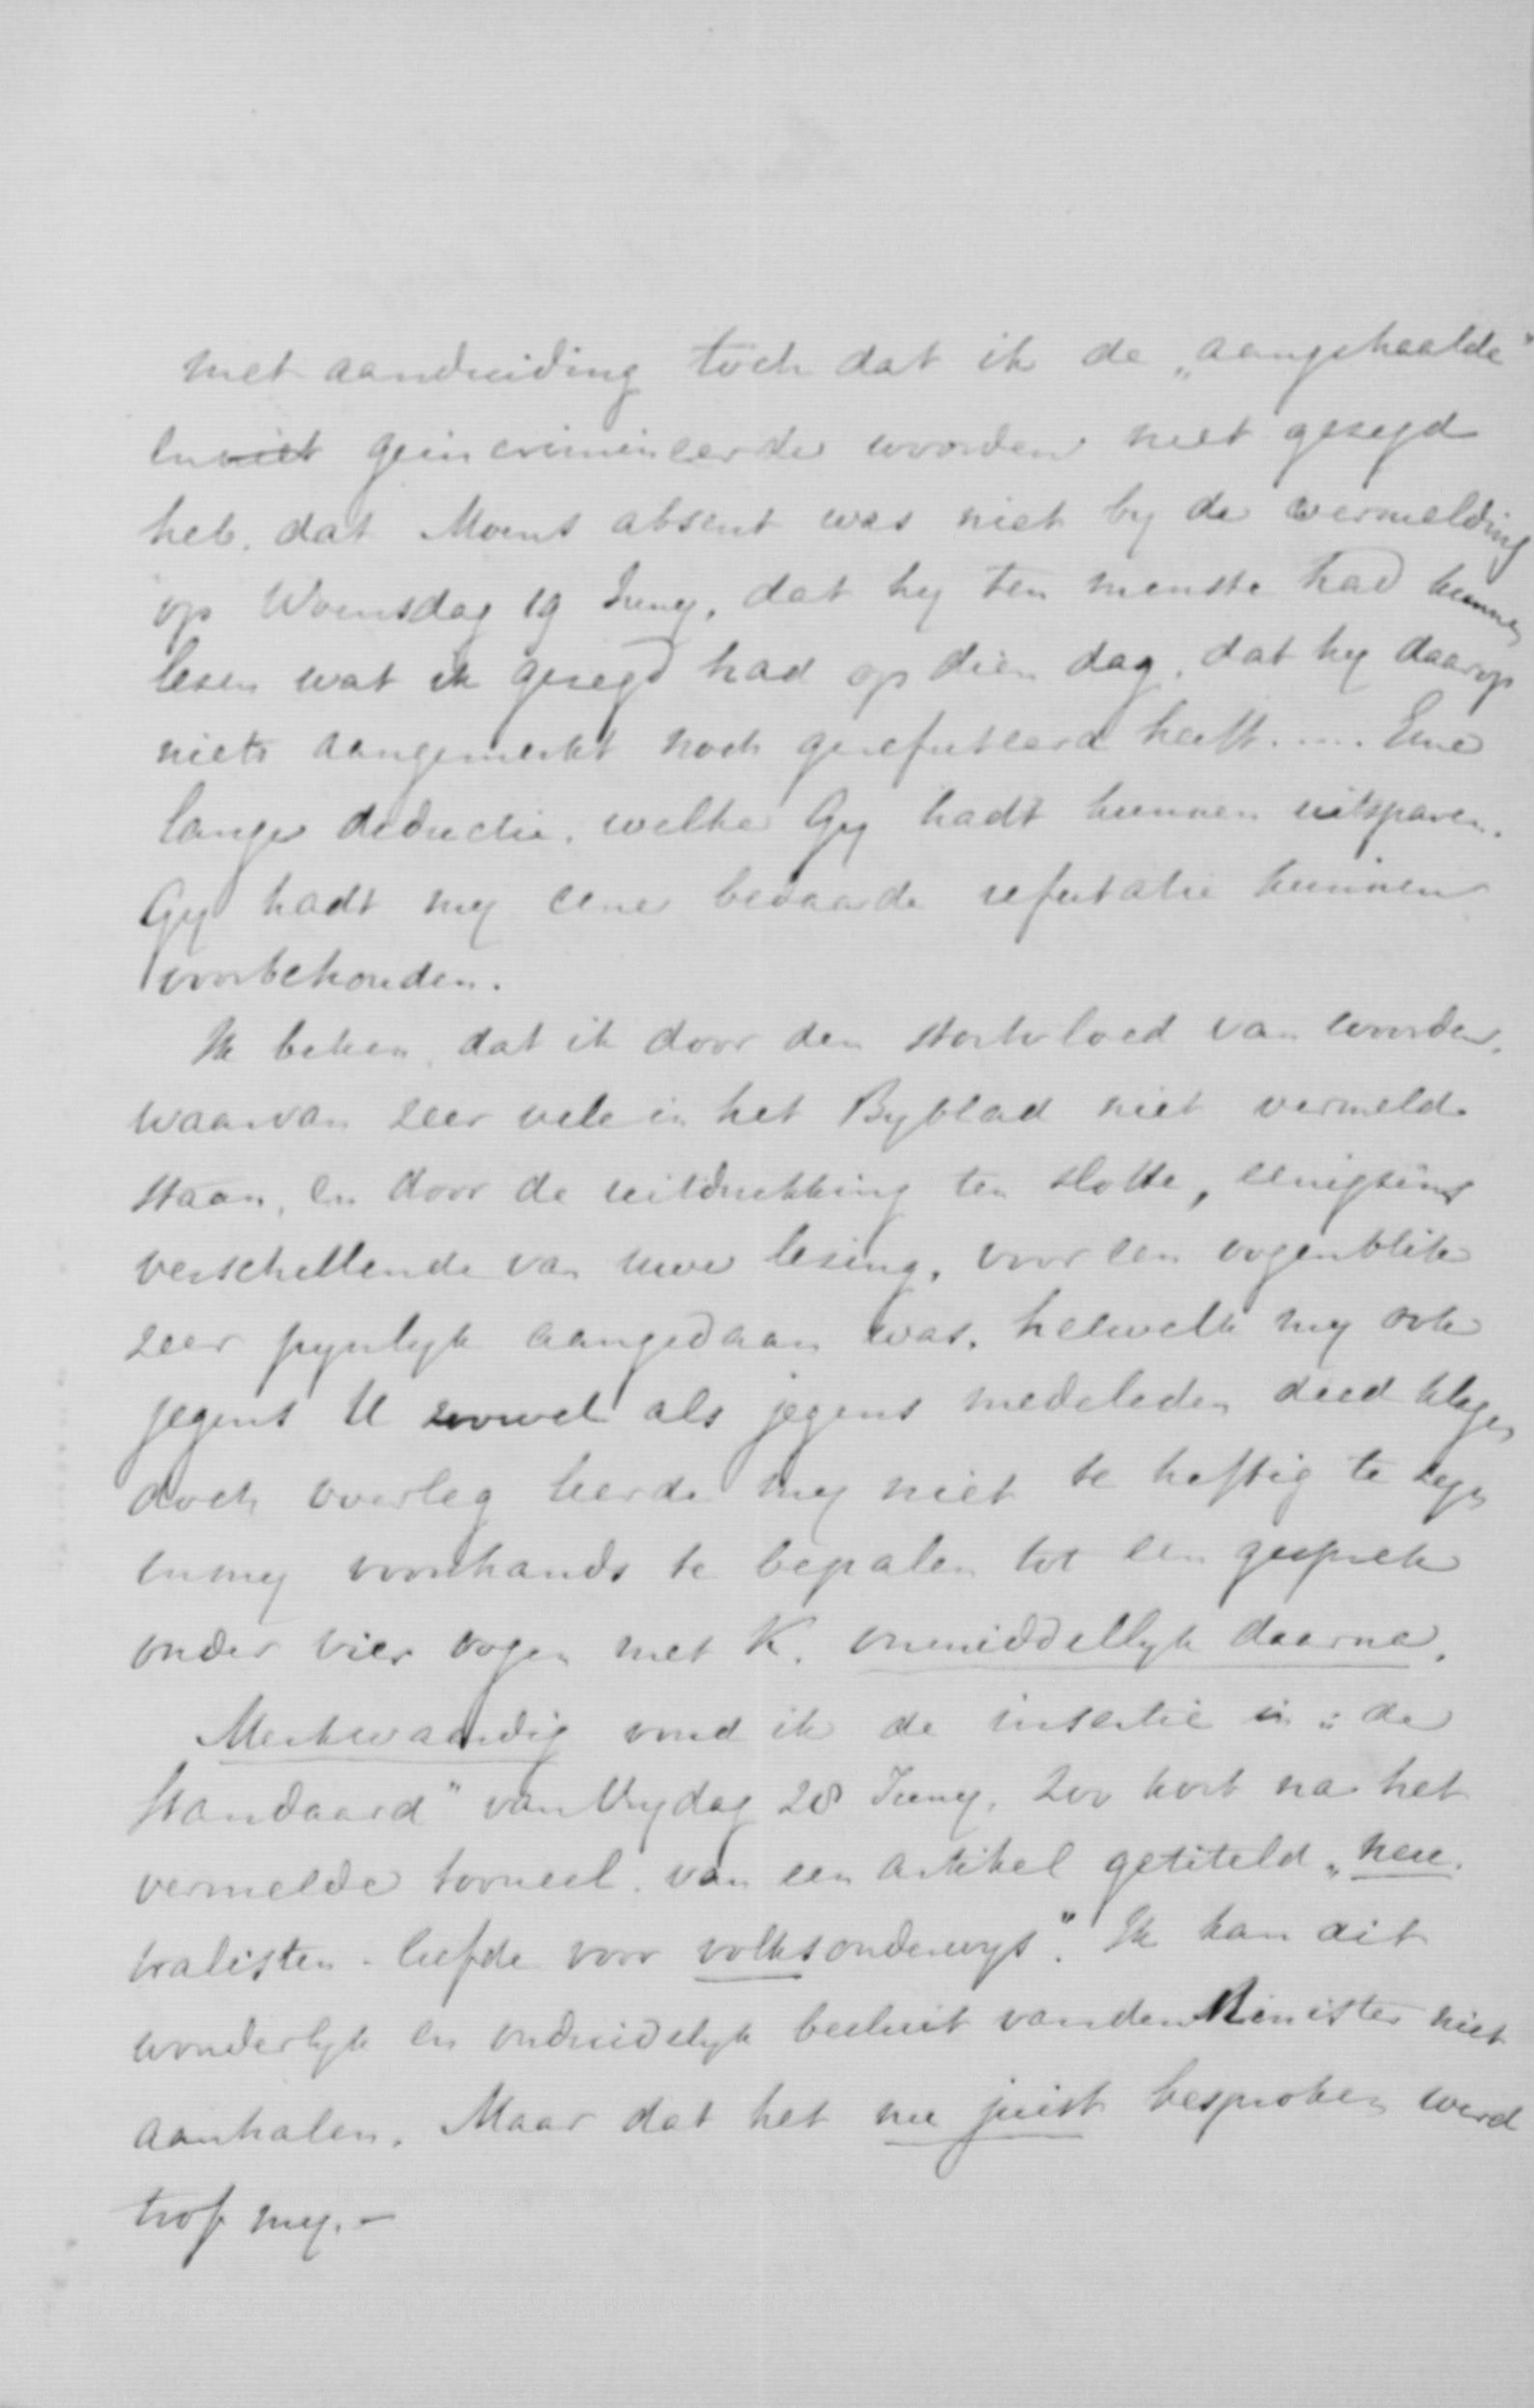 met aanduiding toch dat ik de „aangehaalde"
en niet geincrimineerde woorden niet gezegd
heb, dat Moens absent was niet by de vermelding
op Woensdag 19 Juny, dat hy ten minste had kunnen
lesen wat ik gezegd had op dien dag, dat hy daarop
niets aangemerkt noch gerefuteerd heeft..... Eene
lange deductie, welke Gy hadt kunnen uitsparen.
Gy hadt my eene bedaarde refutatie kunnen
voorbehouden.
Ik beken, dat ik door den stortvloed van woorden,
waarvan zeer vele in het Byblad niet vermeld
staan, en door de uitdrukking ten slotte, eenigsins
verschillende van uwe lesing, voor een oogenblik
zeer pynlyk aangedaan was, hetwelk my ook
jegens U zoowel als jegens medeleden deed klagen
doch overleg leerde my niet te heftig te zyn
en my voorhands te bepalen tot een gesprek
onder vier oogen met K. onmiddellyk daarna.
Merkwaardig vond ik de insertie in „de
Standaard" van Vrydag 28 Juny, zoo kort na het
vermelde tooneel, van een artikel getiteld „neu-
tralisten-liefde voor volksonderwys". Ik kan dit
wonderlyk en onduidelyk besluit van den Minister niet
aanhalen. Maar dat het nu juist besproken werd
trof my.-